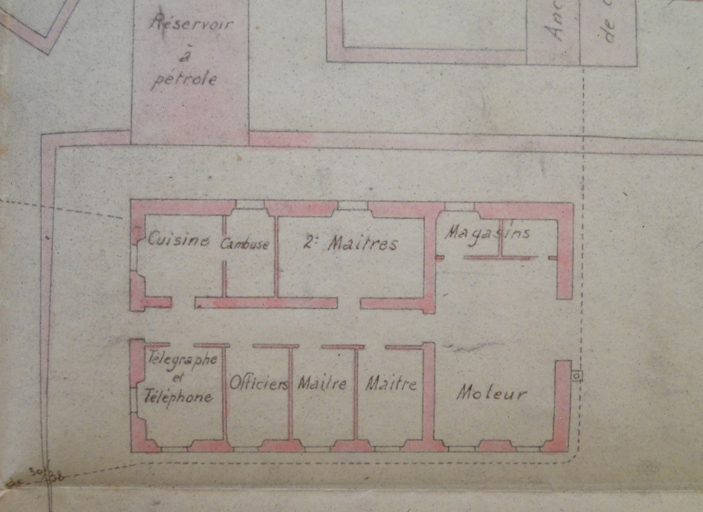 Réservoir
à
pétrole
Anc
de c
Cuisine
Cambuse
2: Maitres
Magasins
Télégraphe
et
Téléphone
Officiers
Maitre
Maitre
Moteur